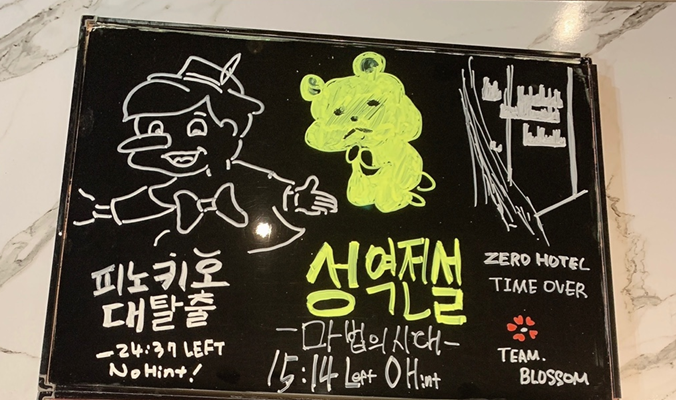 피노키오
대탈출
-24:37 LEFT
NoHint!
성역전설
-마법의시대-
15:14 Left 0Hint
ZERO HOTEL
TIME OVER
TEAM.
BLOSSOM